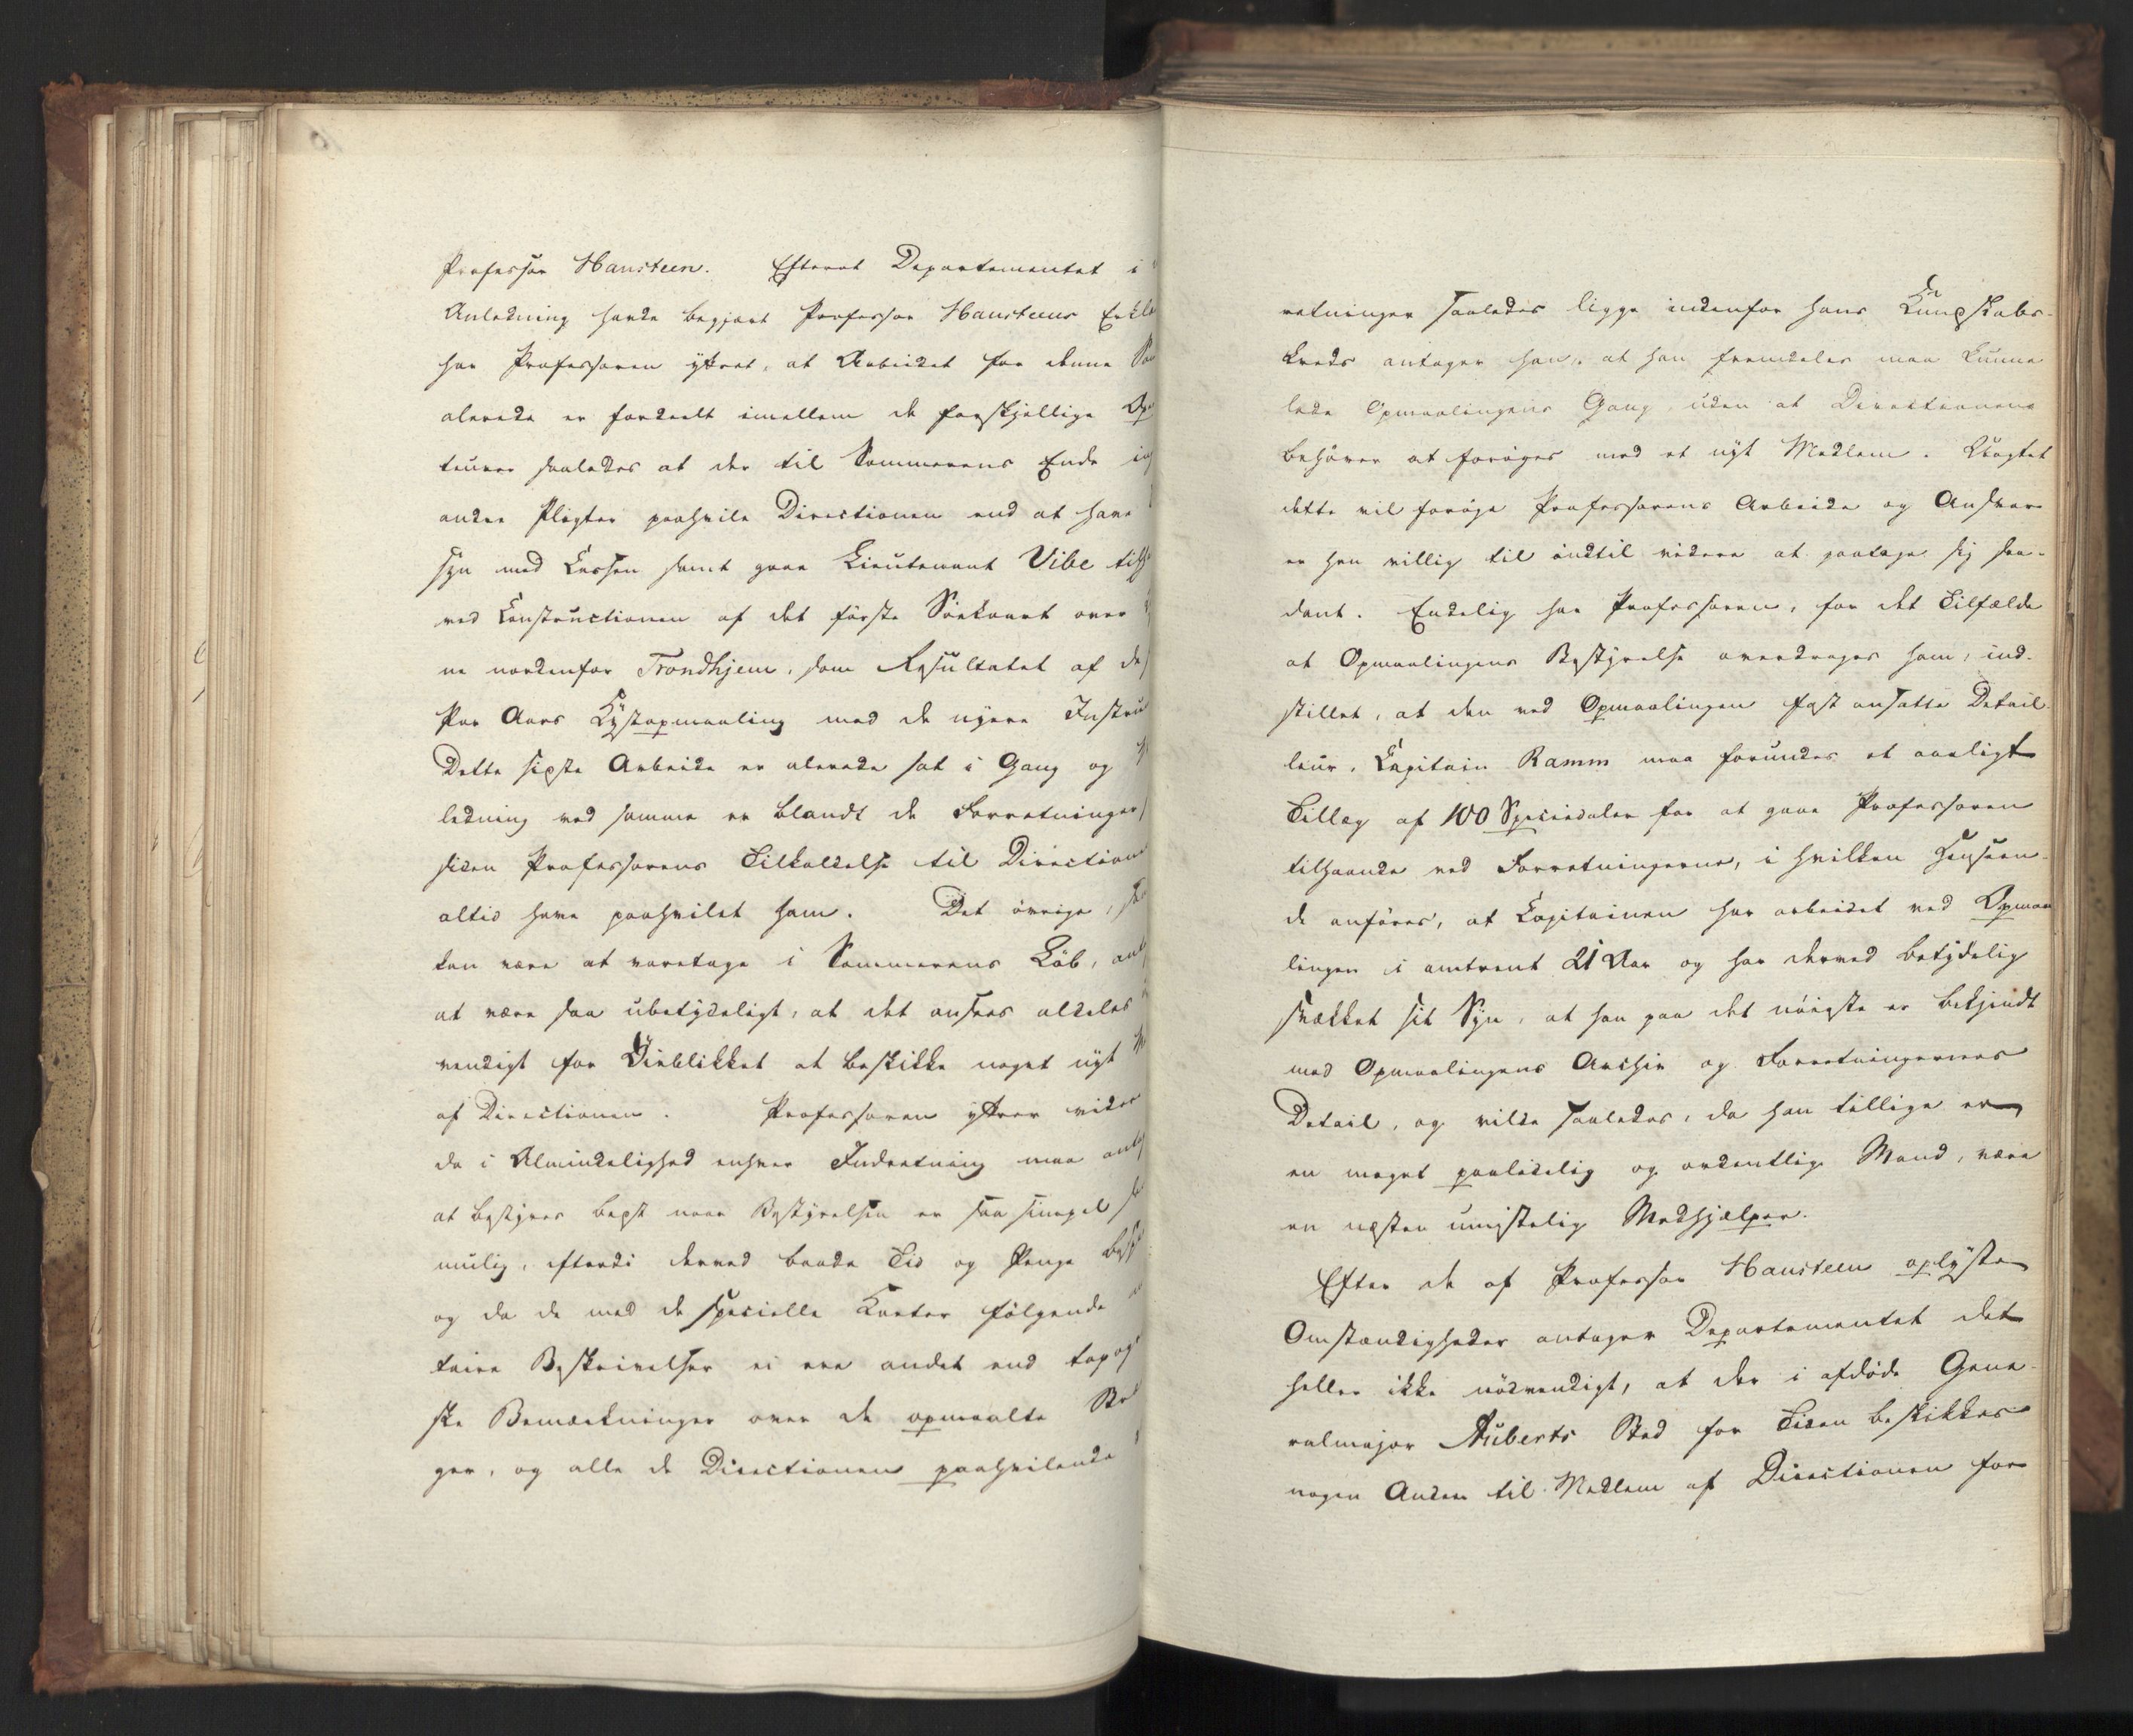 Professor Hansteen. Efterat Departementet i
Anledning havde begjært Professor Hansteens Erklæ
har Professoren yttret, at Arbeidet for denne So
alerede er fordeelt imellem de forskjellige Op
teurer saaledes at der til Sommerens Ende in
andre Pligter paahvile Directionen end at have
syn med Kassen samt gaae Lieutenant Vibe tilh
ved Constructionen af det første Søekaart over
ne nordenfor Trondhjem, som Resultatet af de
Par Aars Kystopmaaling med de nyere Instru
Dette sidste Arbeide er alerede sat i Gang og
ledning ved samme er blandt de Forretninger
siden Professorens Tilkaldelse til Direction
altid have paahvilet ham. Det øvrige,
kan være at varetage i Sommerens Løb, ant
at være saa ubetydeligt, at det ansees aldeles
vendigt for Øieblikket at beskikke noget nyt
af Directionen. Professoren yttrer vider
da i Almindelighed enhver Indretning maa ant
at bestyres bedst naar Bestyrelsen er saa simpel
mulig, efterdi derved baade Tid og Penge besp
og da de med de specielle Karter følgende
taire Beskrivelser ei ere andet end topog
ske Bemærkninger over de opmaalte
ger, og alle de Directionen paahvilende
retninger saaledes ligge indenfor hans Kundskabs-
kreds antager han, at han fremdeles maa kunne
lede Opmaalingens Gang uden at Directionen
behøver at forøges med et nyt Medlem. Uagtet
dette vil forøge Professorens Arbeide og Ansvar
er han villig til indtil videre at paatage sig saa-
dant. Endelig har Professoren, for det Tilfælde
at Opmaalingens Bestyrelse overdrages ham, ind-
stillet, at den ved Opmaalingen fast ansatte Detail
leur, Capitain Ramm maa forundes et aarligt
Tillæg af 100 Speciedaler for at gaae Professoren
tilhaande ved Forretningerne, i hvilken Henseen-
de anføres, at Capitainen har arbeidet ved Opmaa
lingen i omtrent 21 Aar og har derved betydelig
svækket sit Syn, at han paa det nøieste er bekjendt
med Opmaalingens Archiv og Forretningernes
Detail, og vilde saaledes, da han tillige er
en meget paalidelig og ordentlig Mand, være
en næsten umistelig Medhjælper.
Efter de af Professor Hansteen oplyste
Omstændigheder antager Departementet det
heller ikke nødvendigt, at der i afdøde Gene-
ralmajor Auberts Sted for Tiden beskikkes
nogen Anden til Medlem af Directionen for